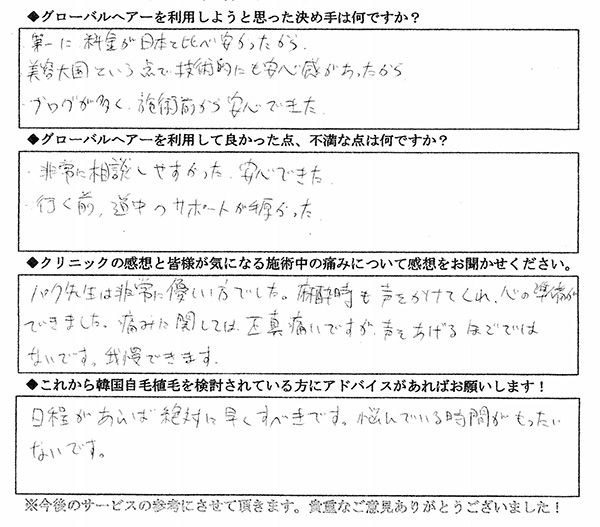 ◆グローバルヘアーを利用しようと思った決め手は何ですか？
・第一に料金が日本と比べ安かったから
・美容大国という点で技術的にも安心感があったから
・ブログが多く、施術前から安心できた
◆グローバルヘアーを利用して良かった点、不満な点は何ですか？
・非常に相談しやすかった、安心できた
・行く前、道中のサポートが手厚かった
◆クリニックの感想と皆様が気になる施術中の痛みについて感想をお聞かせください。
パク先生は非常に優しい方でした。麻酔時も声をかけてくれ、心の準備が
できました。痛みに関しては、正真痛いですが、声をあげるほどでは
ないです。我慢できます。
◆これから韓国自毛植毛を検討されている方にアドバイスがあればお願いします！
日程があえば絶対に早くすべきです。悩んでいる時間がもったい
ないです。
※今後のサービスの参考にさせて頂きます。貴重なご意見ありがとうございました！